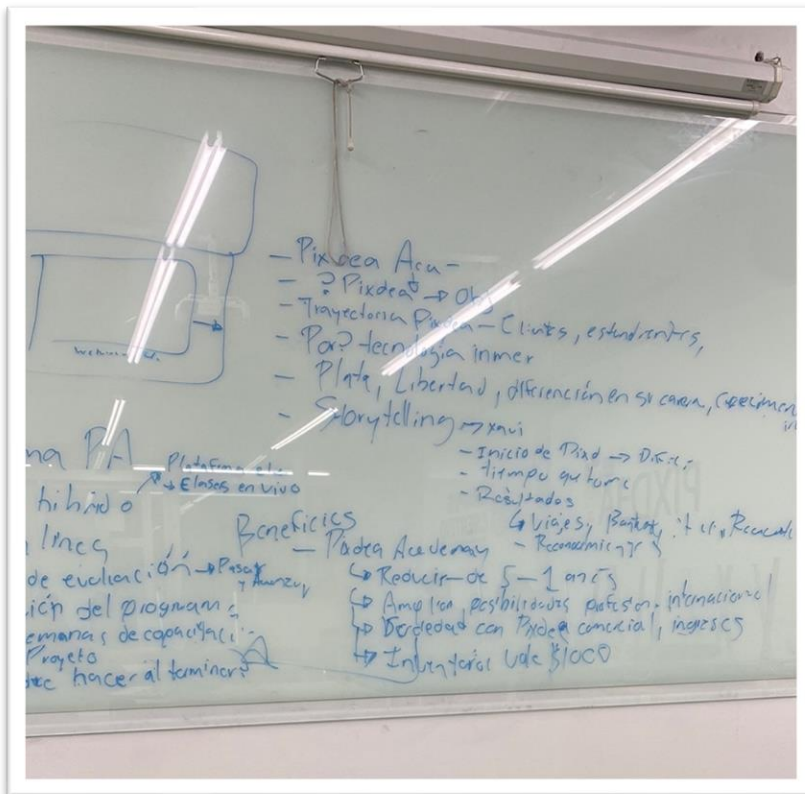 - Pixdea Aca -
- ? Pixdea → Obj
- Trayectoria Pixdea - Clientes, estudiantes,
- Por? tecnología inmer
- Plata, Libertad, diferención en su carrera,
- Storytelling → xavi
- Inicio de Pixd →
- tiempo que tomo
- Resultados
↳ Viajes,
- Reconocimientos
ma PA
→ Clases en vivo
hibrido
linea
de evaluación → Pasar y Avanzar
ción del programa
emanas de capacitaci
Proyecto
hacer al terminar?
Beneficios
- Pixdea Academay
↳ Reducir de 5-1 años
↳ Amplian posibilidades profesion. internacional
↳ con Pixdea comercial, ingresos
↳ vale $1000